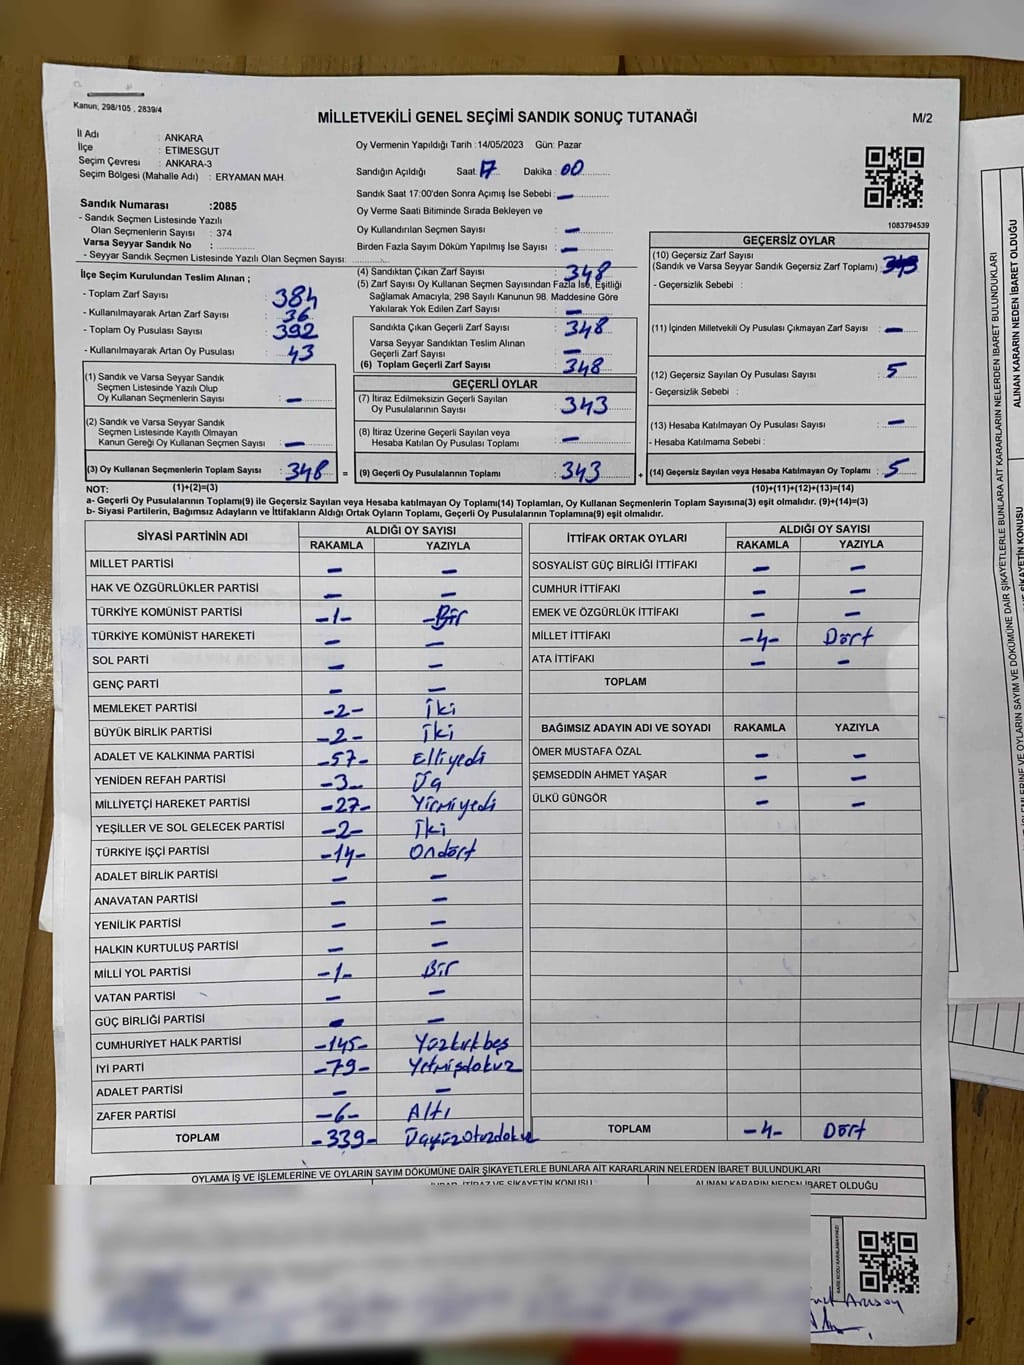 Kanun; 298/105 . 2839/4
MİLLETVEKİLİ GENEL SEÇİMİ SANDIK SONUÇ TUTANAĞI
M/2
İl Adı : ANKARA
İlçe : ETİMESGUT
Seçim Çevresi : ANKARA-3
Seçim Bölgesi (Mahalle Adı) : ERYAMAN MAH.
Sandık Numarası :2085
- Sandık Seçmen Listesinde Yazılı
Olan Seçmenlerin Sayısı : 374
Varsa Seyyar Sandık No :
- Seyyar Sandık Seçmen Listesinde Yazılı Olan Seçmen Sayısı:
İlçe Seçim Kurulundan Teslim Alınan ;
- Toplam Zarf Sayısı : 384
- Kullanılmayarak Artan Zarf Sayısı : 36
- Toplam Oy Pusulası Sayısı : 392
- Kullanılmayarak Artan Oy Pusulası : 43
(1) Sandık ve Varsa Seyyar Sandık
Seçmen Listesinde Yazılı Olup
Oy Kullanan Seçmenlerin Sayısı : –
(2) Sandık ve Varsa Seyyar Sandık
Seçmen Listesinde Kayıtlı Olmayan
Kanun Gereği Oy Kullanan Seçmen Sayısı : –
(3) Oy Kullanan Seçmenlerin Toplam Sayısı : 348 =
Oy Vermenin Yapıldığı Tarih :14/05/2023 Gün: Pazar
Sandığın Açıldığı Saat: 17 Dakika : 00
Sandık Saat 17:00'den Sonra Açımış İse Sebebi : –
Oy Verme Saati Bitiminde Sırada Bekleyen ve
Oy Kullandırılan Seçmen Sayısı : –
Birden Fazla Sayım Döküm Yapılmış İse Sayısı : –
(4) Sandıktan Çıkan Zarf Sayısı : 348
(5) Zarf Sayısı Oy Kullanan Seçmen Sayısından Fazla İse, Eşitliği
Sağlamak Amacıyla, 298 Sayılı Kanunun 98. Maddesine Göre
Yakılarak Yok Edilen Zarf Sayısı : –
Sandıkta Çıkan Geçerli Zarf Sayısı : 348
Varsa Seyyar Sandıktan Teslim Alınan
Geçerli Zarf Sayısı : –
(6) Toplam Geçerli Zarf Sayısı : 348
GEÇERLİ OYLAR
(7) İtiraz Edilmeksizin Geçerli Sayılan
Oy Pusulalarının Sayısı : 343
(8) İtiraz Üzerine Geçerli Sayılan veya
Hesaba Katılan Oy Pusulası Toplamı : –
(9) Geçerli Oy Pusulalarının Toplamı : 343 +
1083794539
GEÇERSİZ OYLAR
(10) Geçersiz Zarf Sayısı
(Sandık ve Varsa Seyyar Sandık Geçersiz Zarf Toplamı) :
- Geçersizlik Sebebi :
(11) İçinden Milletvekili Oy Pusulası Çıkmayan Zarf Sayısı : –
(12) Geçersiz Sayılan Oy Pusulası Sayısı : 5
- Geçersizlik Sebebi :
(13) Hesaba Katılmayan Oy Pusulası Sayısı : –
- Hesaba Katılmama Sebebi :
(14) Geçersiz Sayılan veya Hesaba Katılmayan Oy Toplamı : 5
NOT: (1)+(2)=(3) (10)+(11)+(12)+(13)=(14)
a- Geçerli Oy Pusulalarının Toplamı(9) ile Geçersiz Sayılan veya Hesaba katılmayan Oy Toplamı(14) Toplamları, Oy Kullanan Seçmenlerin Toplam Sayısına(3) eşit olmalıdır. (9)+(14)=(3)
b- Siyasi Partilerin, Bağımsız Adayların ve İttifakların Aldığı Ortak Oyların Toplamı, Geçerli Oy Pusulalarının Toplamına(9) eşit olmalıdır.
SİYASİ PARTİNİN ADI ALDIĞI OY SAYISI
RAKAMLA YAZIYLA
MİLLET PARTİSİ – –
HAK VE ÖZGÜRLÜKLER PARTİSİ – –
TÜRKİYE KOMÜNİST PARTİSİ -1- -Bir
TÜRKİYE KOMÜNİST HAREKETİ – –
SOL PARTİ – –
GENÇ PARTİ – –
MEMLEKET PARTİSİ -2- İki
BÜYÜK BİRLİK PARTİSİ -2- İki
ADALET VE KALKINMA PARTİSİ -57- Elliyedi
YENİDEN REFAH PARTİSİ -3- Üç
MİLLİYETÇİ HAREKET PARTİSİ -27- Yirmiyedi
YEŞİLLER VE SOL GELECEK PARTİSİ -2- İki
TÜRKİYE İŞÇİ PARTİSİ -14- Ondört
ADALET BİRLİK PARTİSİ – –
ANAVATAN PARTİSİ – –
YENİLİK PARTİSİ – –
HALKIN KURTULUŞ PARTİSİ – –
MİLLİ YOL PARTİSİ -1- Bir
VATAN PARTİSİ – –
GÜÇ BİRLİĞİ PARTİSİ – –
CUMHURİYET HALK PARTİSİ -145- Yüzkırkbeş
İYİ PARTİ -79- Yetmişdokuz
ADALET PARTİSİ – –
ZAFER PARTİSİ -6- Altı
TOPLAM -339- Üçyüzotuzdokuz
İTTİFAK ORTAK OYLARI ALDIĞI OY SAYISI
RAKAMLA YAZIYLA
SOSYALİST GÜÇ BİRLİĞİ İTTİFAKI – –
CUMHUR İTTİFAKI – –
EMEK VE ÖZGÜRLÜK İTTİFAKI – –
MİLLET İTTİFAKI -4- Dört
ATA İTTİFAKI – –
TOPLAM
BAĞIMSIZ ADAYIN ADI VE SOYADI RAKAMLA YAZIYLA
ÖMER MUSTAFA ÖZAL – –
ŞEMSEDDİN AHMET YAŞAR – –
ÜLKÜ GÜNGÖR – –
TOPLAM -4- Dört
OYLAMA İŞ VE İŞLEMLERİNE VE OYLARIN SAYIM DÖKÜMÜNE DAİR ŞİKAYETLERLE BUNLARA AİT KARARLARIN NELERDEN İBARET BULUNDUKLARI
İTİRAZ VE ŞİKAYETİN KONUSU
ALINAN KARARIN NEDEN İBARET OLDUĞU
ALINAN KARARIN NEDEN İBARET OLDUĞU